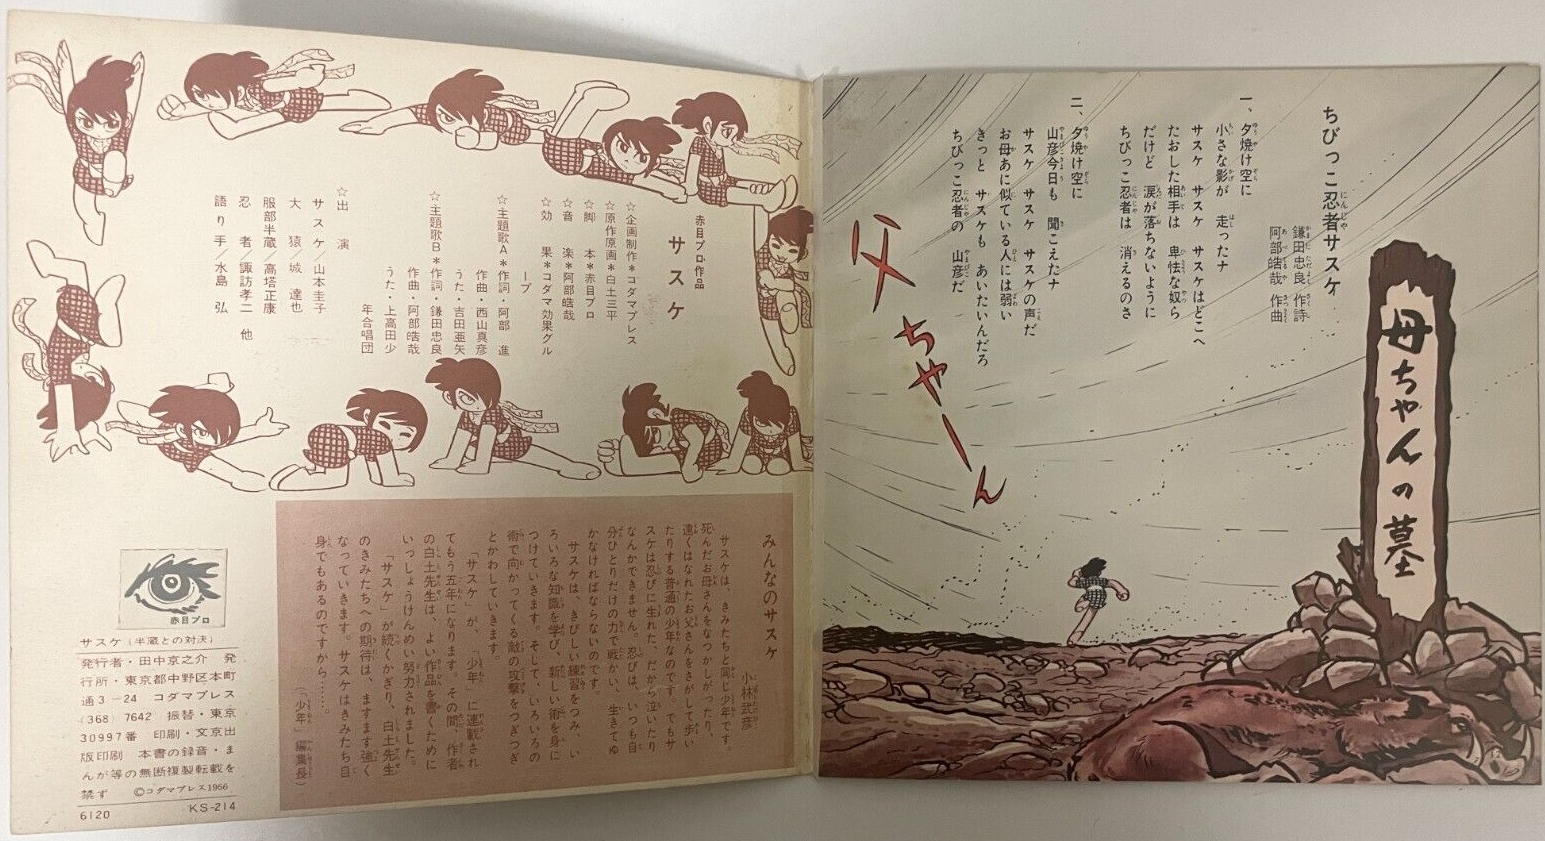 ちびっこ忍者サスケ
鎌田忠良 作詩
阿部皓哉 作曲
一、夕焼け空に
小さな影が 走ったナ
サスケ サスケ サスケはどこへ
たおした相手は 卑怯な奴ら
だけど 涙が落ちないように
ちびっこ忍者は 消えるのさ
二、夕焼け空に
山彦今日も 聞こえたナ
サスケ サスケ サスケの声だ
お母あに似ている人には弱い
きっと サスケも あいたいんだろ
ちびっこ忍者の 山彦だ
父ちゃーん
母ちゃんの墓
赤目プロ・作品
サスケ
☆企画制作＊コダマプレス
☆原作原画＊白土三平
☆脚 本＊赤目プロ
☆音 楽＊阿部皓哉
☆効 果＊コダマ効果グル
ープ
☆主題歌A＊作詞・阿部 進
作曲・西山真彦
うた・吉田亜矢
☆主題歌B＊作詞・鎌田忠良
作曲・阿部皓哉
うた・上高田少
年合唱団
☆出 演
サスケ／山本圭子
大 猿／城 達也
服部半蔵／高塔正康
忍 者／諏訪孝二 他
語り手／水島 弘
みんなのサスケ
小林武彦
サスケは、きみたちと同じ少年です
死んだお母さんをなつかしがったり、
遠くはなれたお父さんをさがして歩い
たりする普通の少年なのです。でもサ
スケは忍びに生れた、だから泣いたり
なんかできません。忍びは、いつも自
分ひとりだけの力で戦かい、生きてゆ
かなければならないのです。
サスケは、きびしい練習をつみ、い
ろいろな知識を学び、新しい術を身に
つけていきます。そして、いろいろの
術で向かってくる敵の攻撃をつぎつぎ
とかわしていきます。
「サスケ」が、「少年」に連載され
てもう五年になります。その間、作者
の白土先生は、よい作品を書くために
いっしょうけんめい努力されました。
「サスケ」が続くかぎり、白土先生
のきみたちへの期待は、ますます強く
なっていきます。サスケはきみたち自
身でもあるのですから……。
（「少年」編集長）
赤目プロ
サスケ（半蔵との対決）
発行者・田中京之介 発
行所・東京都中野区本町
通3－24 コダマプレス
(368) 7642 振替・東京
30997番 印刷・文京出
版印刷 本書の録音・ま
んが等の無断複製転載を
禁ず ©コダマプレス1966
6120 KS-214